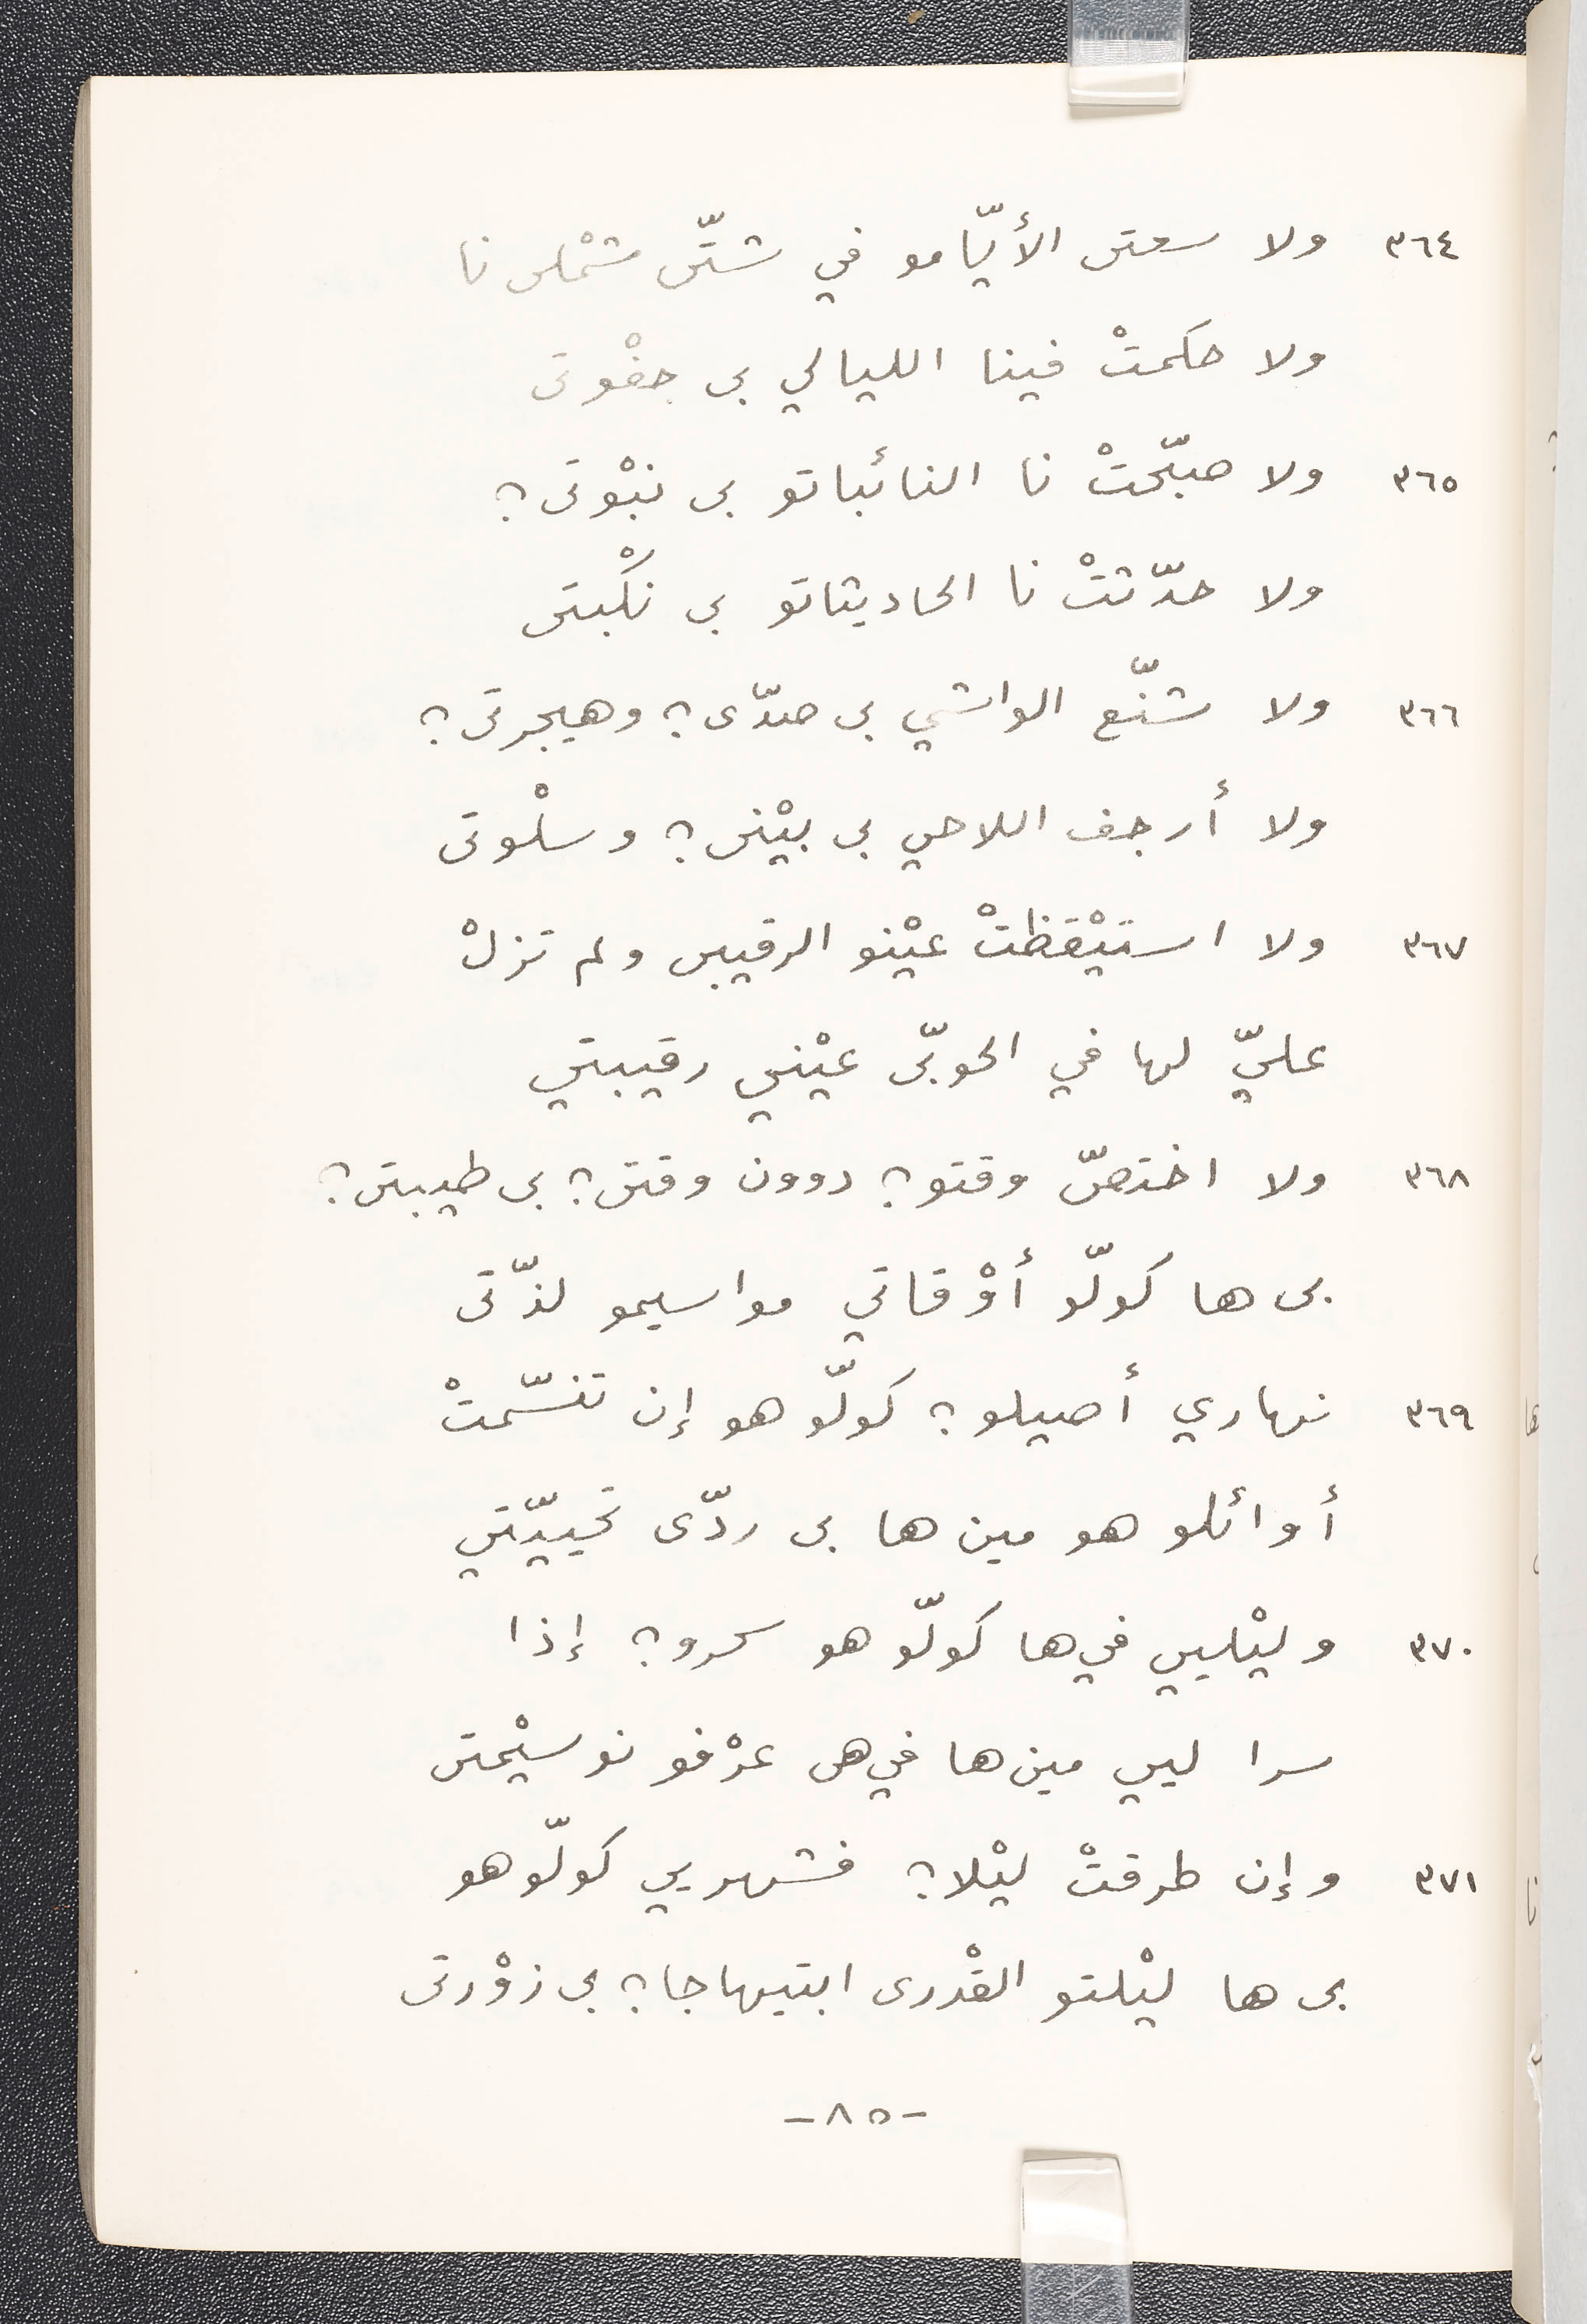 ٣٦٤ ولا سعتى الأيّامو في شتّى شمْلى نا
ولا حكمتْ فينا الليالي بى جفْوتى
٣٦٥ ولا صبّحتْ نا النائباتو بى نبْوتى؟
ولا حدّثتْ نا الحاديثاتو بى نكْبتى
٣٦٦ ولا شنّع الواشي بى صدّى؟ وهيجرتى؟
ولا أرجف اللاحي بى بيْنى؟ وسلْوتى
٣٦٧ ولا استيْقظتْ عيْنو الرقيبى ولم تزلْ
عليّ لها في الحوبّى عيْني رقيبتي
٣٦٨ ولا اختصّ وقتو؟ دوون وقتى؟ بى طيبتى؟
بى ها كولّو أوْقاتي مواسيمو لذّتى
٣٦٩ نهاري أصيلو؟ كولّو هو إن تنسّمتْ
أوائلو هو مين ها بى ردّى تحييّتي
٣٧٠ وليْليي في ها كولّو هو سحرو؟ إذا
سرا ليي مين ها في هى عرْفو نوسيْمتى
٣٧١ وإن طرقتْ ليْلا؟ فشهريي كولّو هو
بى ها ليْلتو القْدرى ابتيهاجا؟ بى زوْرتى
-٨٥-